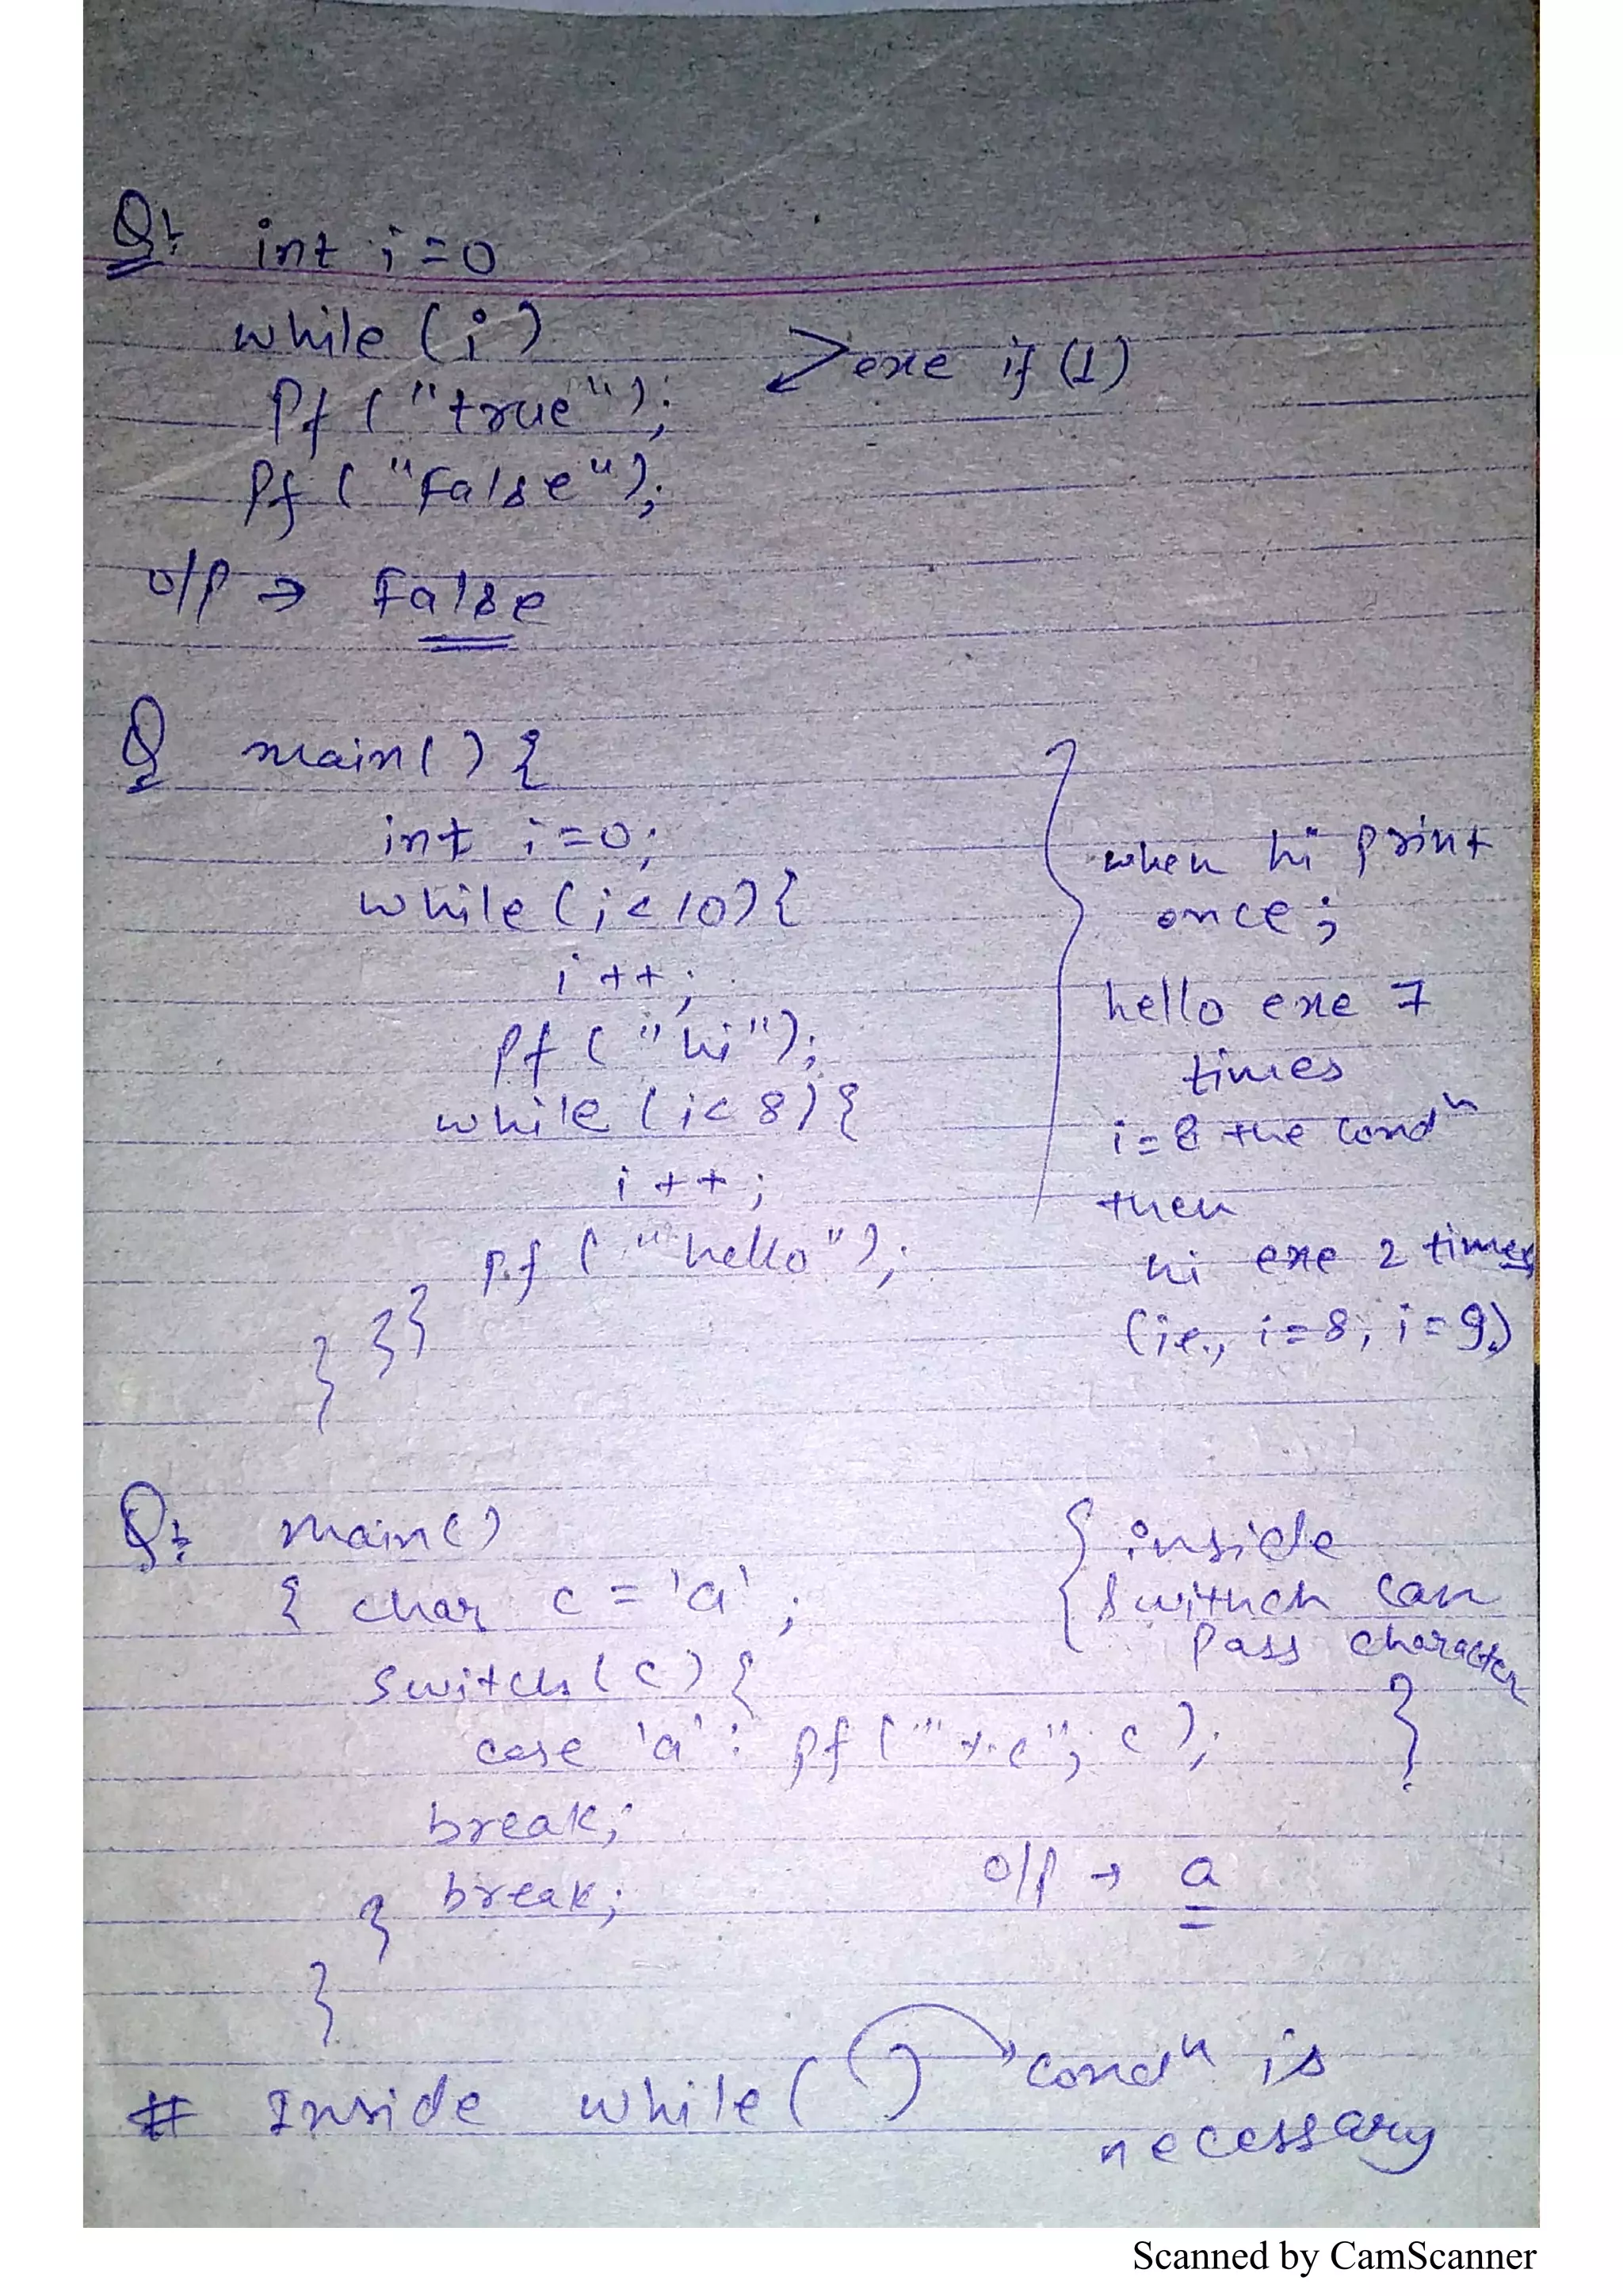 Q: int i=0
while (i)
exe if (1)
Pf ("true");
Pf ("False");
o/p → False
Q main() {
int i=0;
while (i<10) {
i++;
Pf ("hi");
while (i<8) {
i++;
Pf ("hello");
}}
}
when hi print
once;
hello exe 7
times
i=8 the condn
then
hi exe 2 times
(ie., i=8, i=9)
Q: main()
{ char c = 'a';
switch (c) {
case 'a': pf ("%c", c);
break;
break;
}
}
{ inside
swithch can
pass character
}
o/p → a
# Inside while ( ) condn is
necessary
Scanned by CamScanner